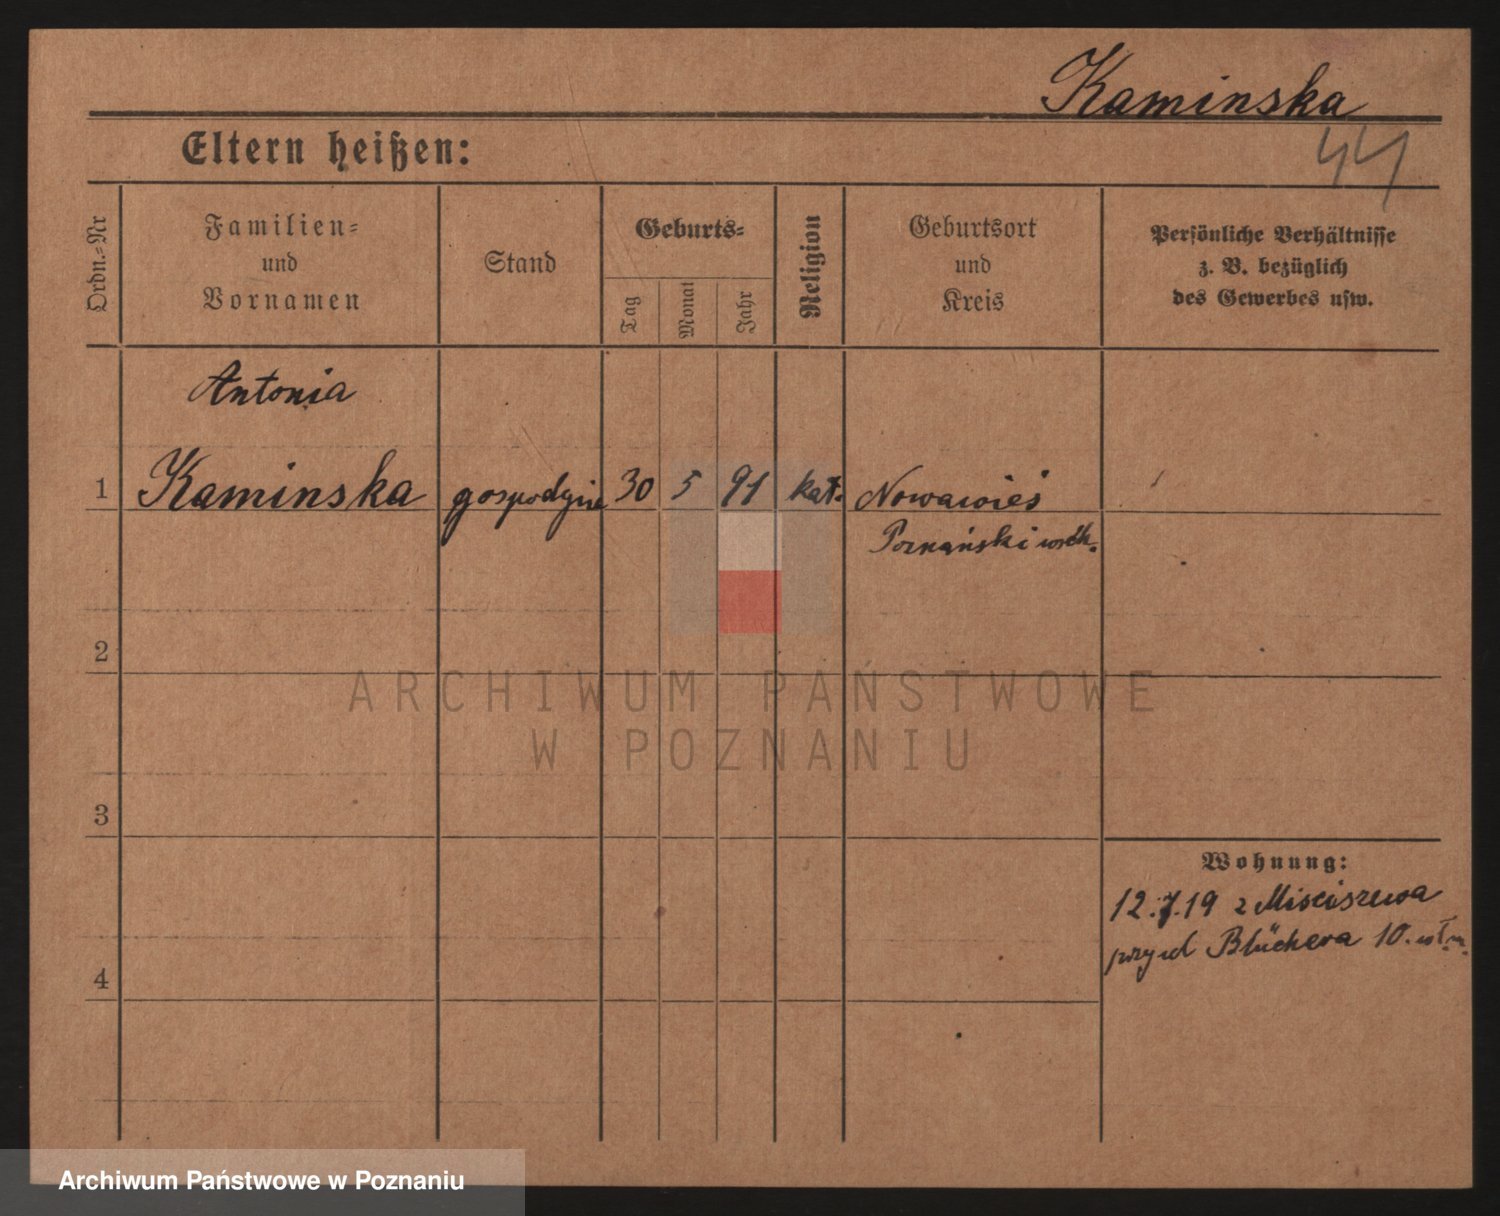 Kaminska
44
Eltern heißen:
Ordn.-Nr
Familien-
und
Vornamen
Stand
Geburts-
Tag
Monat
Jahr
Religion
Geburtsort
und
Kreis
Persönliche Verhältnisse
z. B. bezüglich
des Gewerbes usw.
Antonia
1 Kaminska gospodynie 30 5 91 kat. Nowawieś
Poznański wsch.
2
ARCHIWUM PAŃSTWOWE
W POZNANIU
3
Wohnung:
12.7.19 z Misciszewa
Blüchera 10.
4
Archiwum Państwowe w Poznaniu